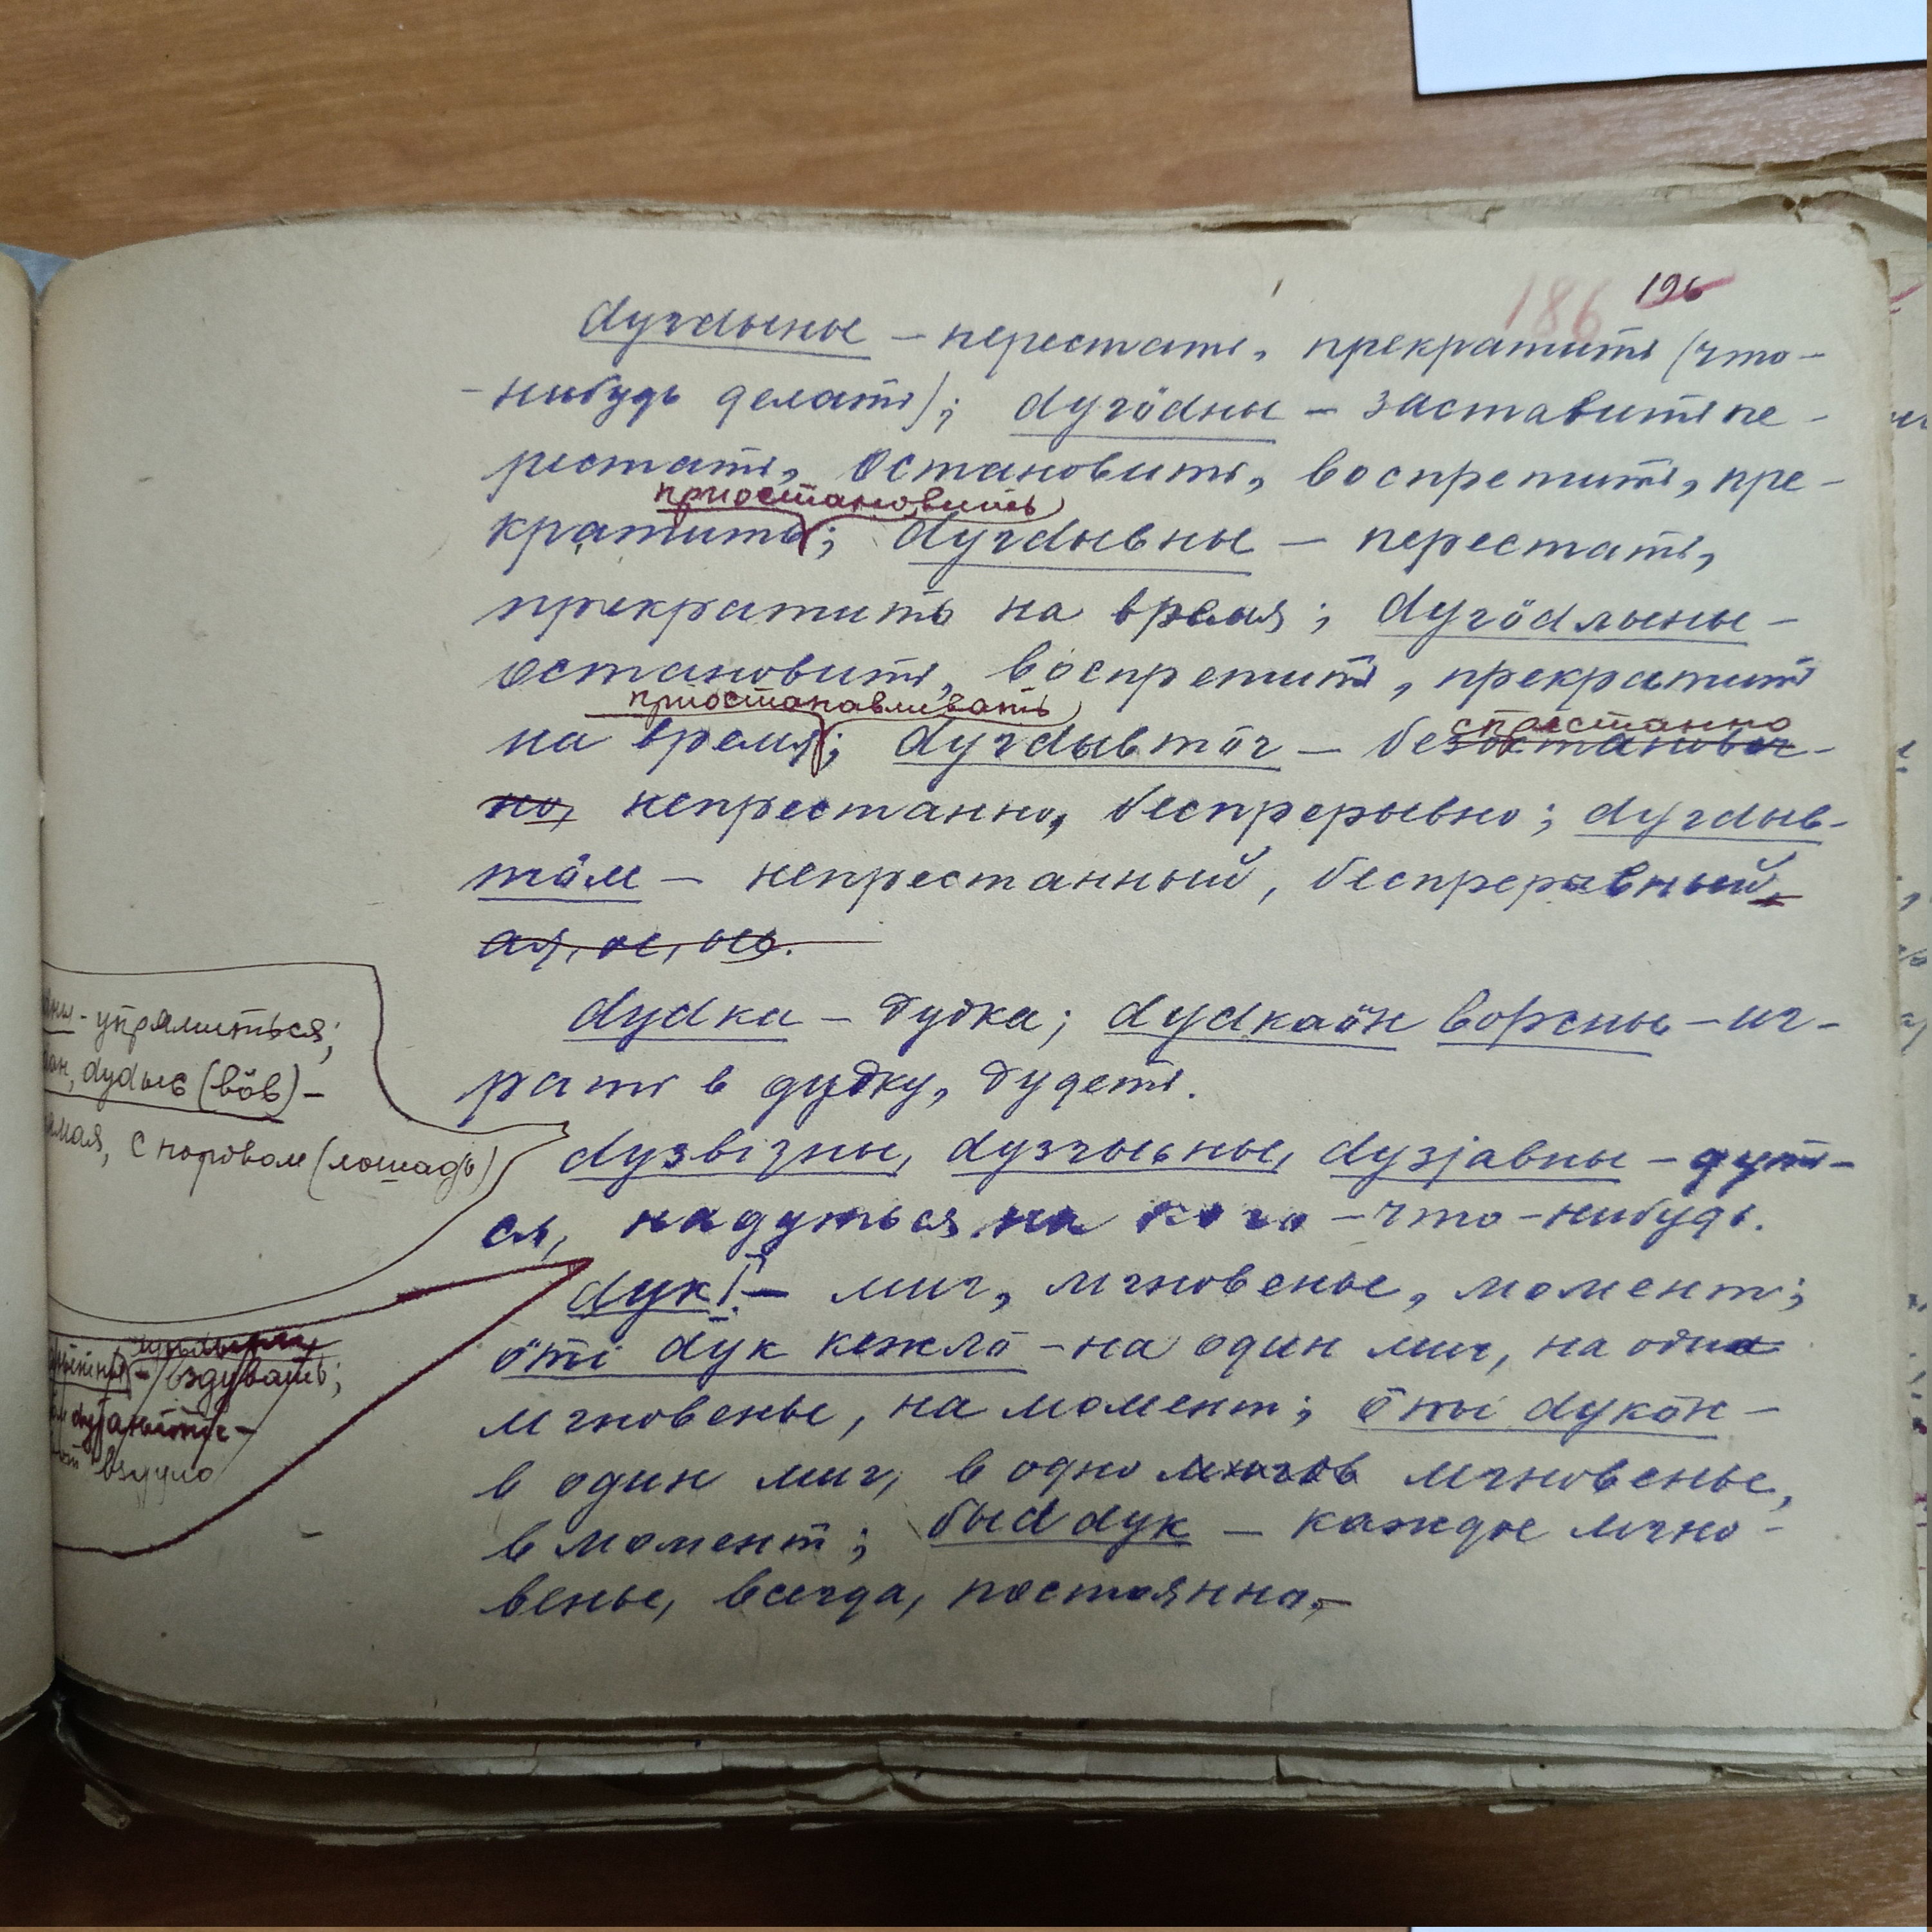 186 196
dугdыны – перестать, прекратить (что-
-нибудь делать); dугöдны – заставить пе-
рестать, остановить, воспретить, пре-
приостановить
кратить; dугdывны – перестать,
прекратить на время; dугöдлыны –
остановить, воспретить, прекратить
приостанавливать
на время; dугdывтöг – безостановоч-
спрестанно
но, непрестанно, беспрерывно; dугdыв-
тöм – непрестанный, беспрерывный,
ая, ое, ые.
dудка – дудка; dудкаöн ворсны – иг-
рать в дудку, дудеть.
dузвіӡны, dузгысьны, dузјавны – дуть-
ся, надуться на кого-что-нибудь.
dук! – миг, мгновенье, момент;
öті dук кежлö – на один миг, на одно
мгновенье, на момент; öті dукöн –
в один миг, в одно мгнов мгновенье,
в момент; быd dук – каждое мгно-
венье, всегда, постоянно. –
упрямиться;
dудыс (вöв) –
с норовом (лошадь)
вздувать;
вздуло